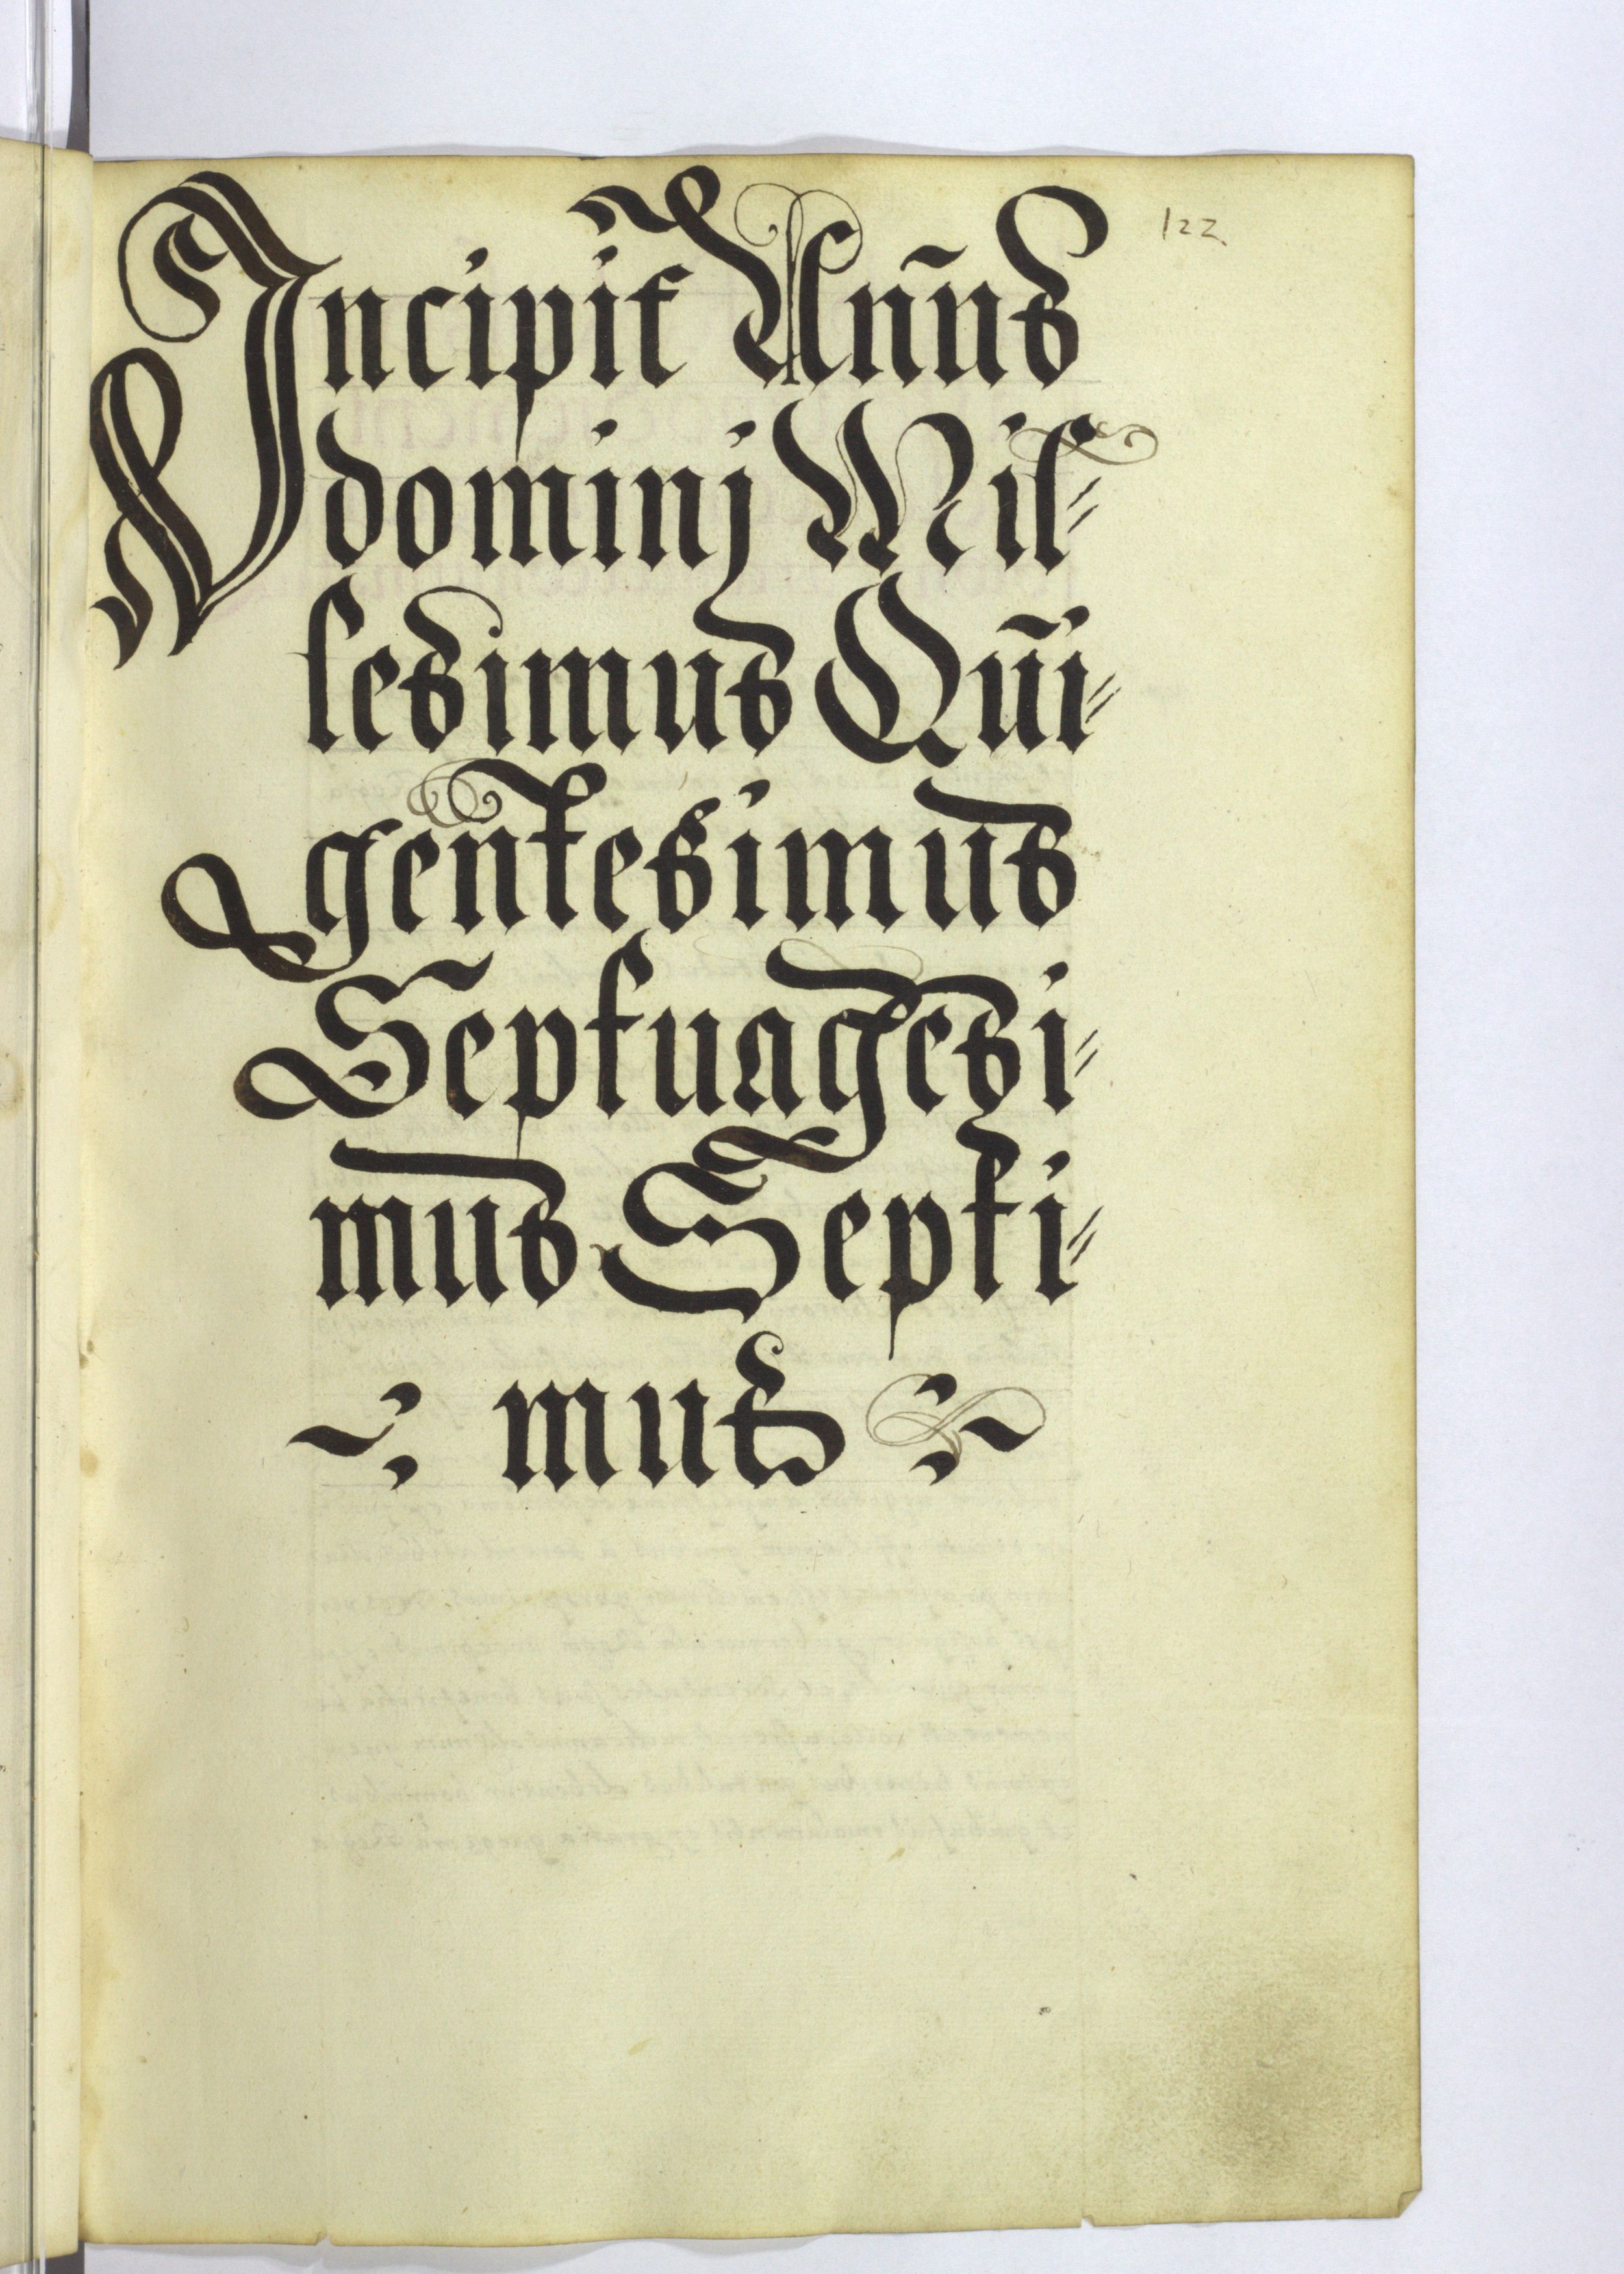 122
Incipit Añus
dominj Mil=
lesimus Qui̅=
gentesimus
Septuagesi=
mus Septi=
mus